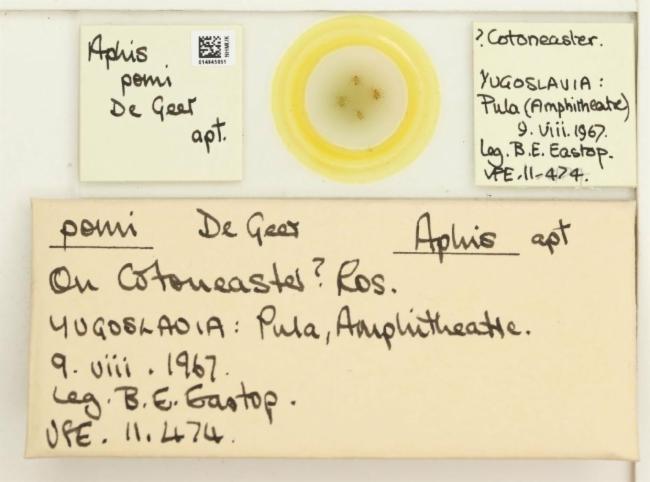 Aphis
pomi
De Geer
apt.
NHMUK
014845051
? Cotoneaster.
YUGOSLAVIA:
Pula (Amphitheatre)
9. viii. 1967.
Leg. B.E. Eastop.
VFE. 11-474.
pomi De Geer Aphis apt
On Cotoneaster? Ros.
YUGOSLAVIA: Pula, Amphitheatre.
9. viii. 1967.
Leg. B.E. Eastop.
VFE. 11.474.